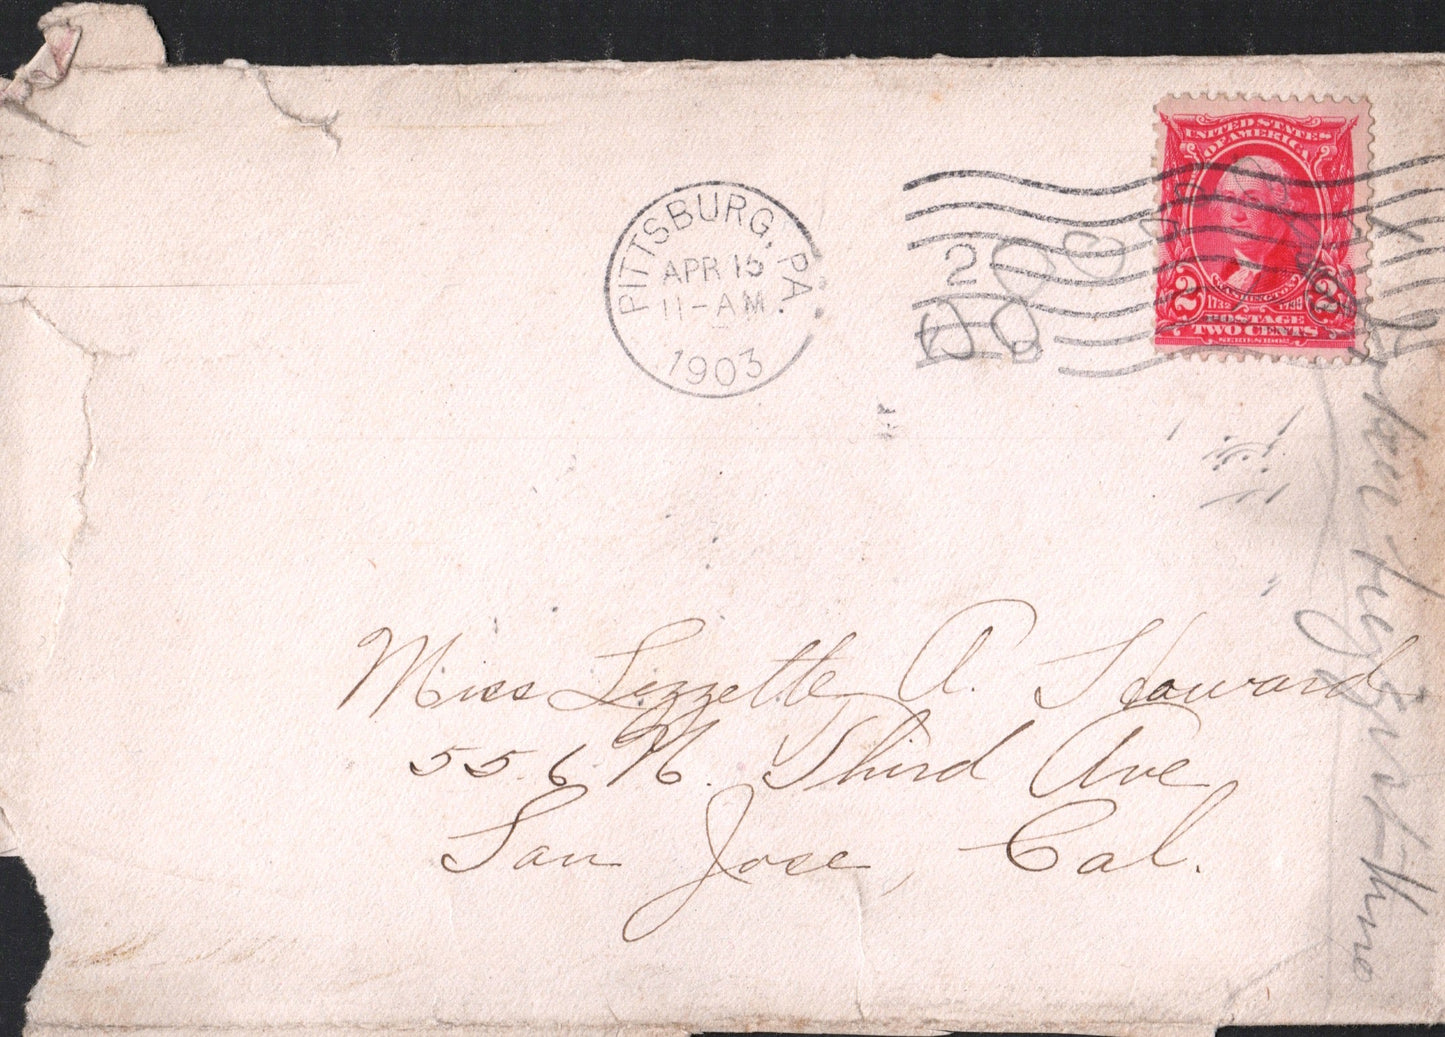 PITTSBURG, PA.
APR 15
11-AM
1903
2
UNITED STATES
OF AMERICA
WASHINGTON
1732 1799
2 2
POSTAGE
TWO CENTS
SERIES 1902
Miss Lizzette A. Howard
556 N. Third Ave
San Jose, Cal.